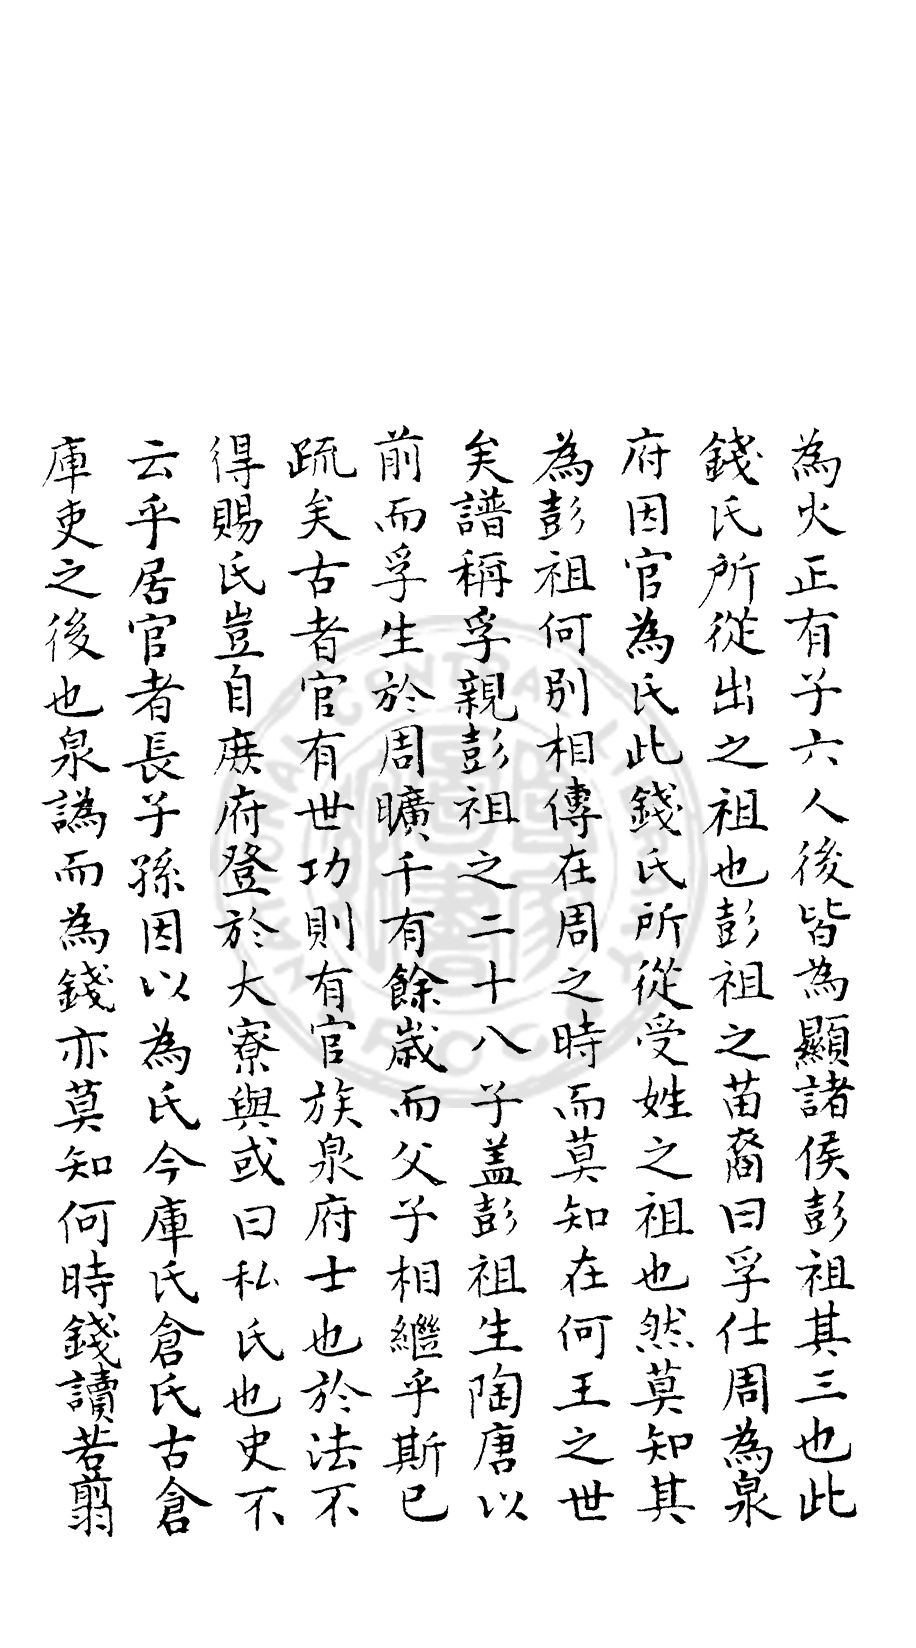 為火正有子六人後皆為顯諸侯彭祖其三也此
錢氏所從出之祖也彭祖之苗裔曰孚仕周為泉
府因官為氏此錢氏所從受姓之祖也然莫知其
為彭祖何別相傳在周之時而莫知在何王之世
矣譜稱孚親彭祖之二十八子盖彭祖生陶唐以
前而孚生於周曠千有餘歲而父子相繼乎斯已
疏矣古者官有世功則有官族泉府士也於法不
得賜氏豈自庶府登於大寮與或曰私氏也史不
云乎居官者長子孫因以為氏今庫氏倉氏古倉
庫吏之後也泉譌而為錢亦莫知何時錢讀若翦